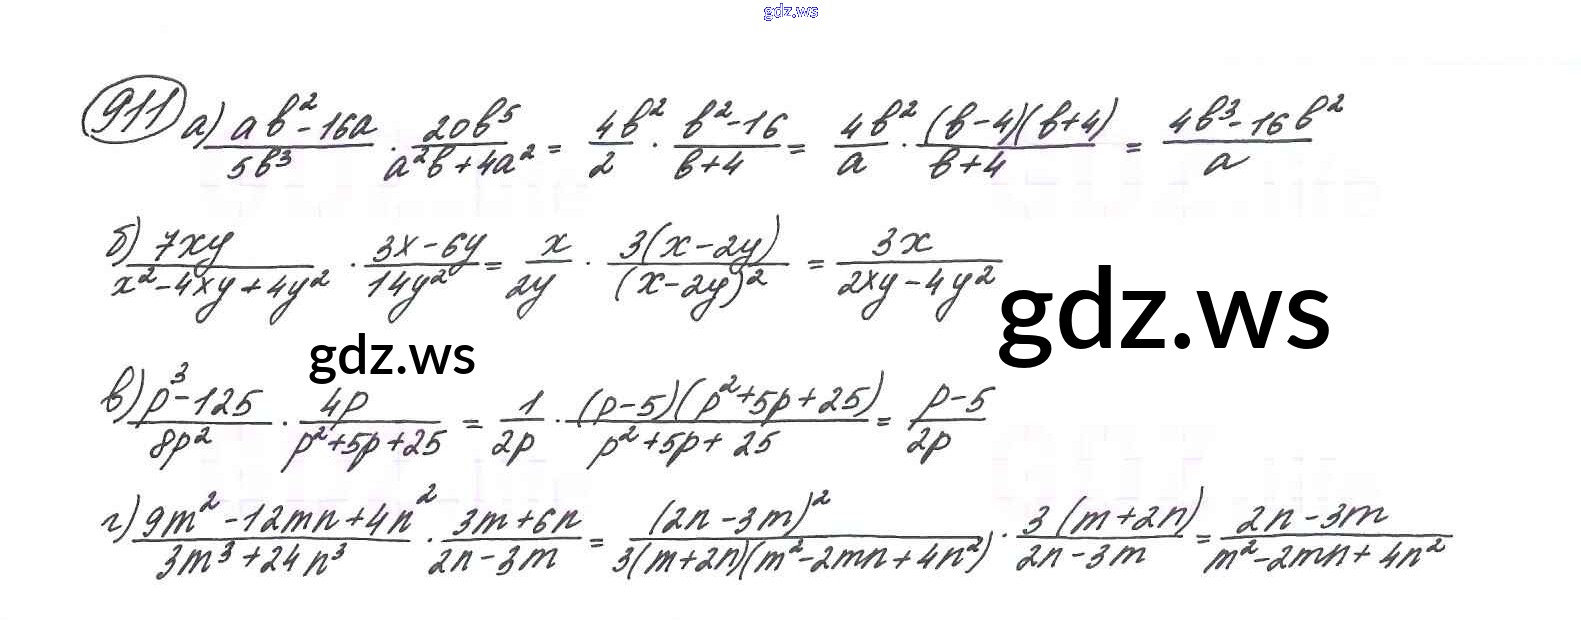 gdz.ws
911 а) (ab²-16a)/(5b³) · (20b⁵)/(a²b+4a²) = (4b²)/2 · (b²-16)/(b+4) = (4b²)/a · ((b-4)(b+4))/(b+4) = (4b³-16b²)/a
б) (7xy)/(x²-4xy+4y²) · (3x-6y)/(14y²) = x/(2y) · (3(x-2y))/((x-2y)²) = (3x)/(2xy-4y²)
gdz.ws
gdz.ws
в) (p³-125)/(8p²) · (4p)/(p²+5p+25) = 1/(2p) · ((p-5)(p²+5p+25))/(p²+5p+25) = (p-5)/(2p)
г) (9m²-12mn+4n²)/(3m³+24n³) · (3m+6n)/(2n-3m) = ((2n-3m)²)/(3(m+2n)(m²-2mn+4n²)) · (3(m+2n))/(2n-3m) = (2n-3m)/(m²-2mn+4n²)